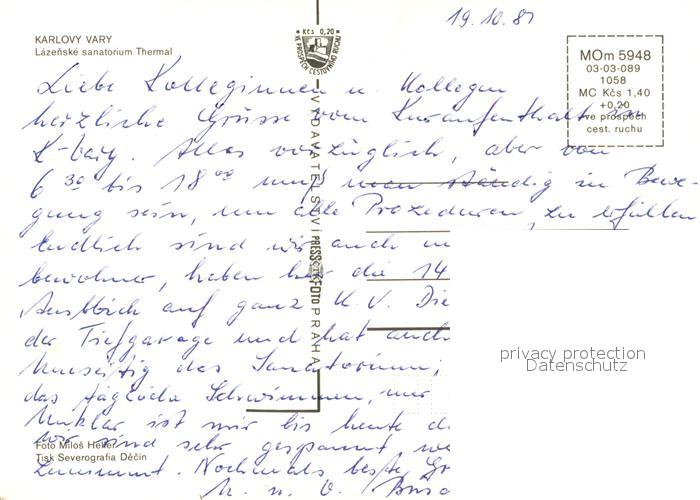 19.10.81
KARLOVY VARY
Lázeňské sanatorium Thermal
Kčs 0,20
VE PROSPĚCH CESTOVNÍHO RUCHU
MOm 5948
03-03-089
1058
MC Kčs 1,40
+0,20
ve prospěch
cest. ruchu
Liebe Kolleginnen u. Kollegen
herzliche Grüsse vom Kuraufenthalt in
K-Vary. Alles vorzüglich, aber von
6 30 bis 18 00 muß man ständig in Bewe-
gung sein, um alle Prozeduren zu erfüllen
Endlich sind wir auch
bewohner, haben hier die 14
Ausblick auf ganz K.V. Die
der Tiefgarage und hat auch
das Sanatorium,
das tägliche Schwimmen, nur
Unklar ist mir bis heute
wir sind sehr gespannt
Nochmals beste
VYDAVATELSTVÍ PRESSFOTO PRAHA
privacy protection
Datenschutz
Foto Miloš Heller
Tisk Severografia Děčín